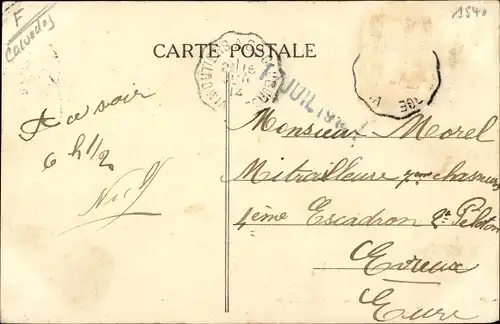 F
Calvados
1540
CARTE POSTALE
JUIL 19
A ce soir
6 h 1/2
Monsieur Morel
Mitrailleuse 7eme chasseurs
4ème Escadron 2e Peloton
Evreux
Eure